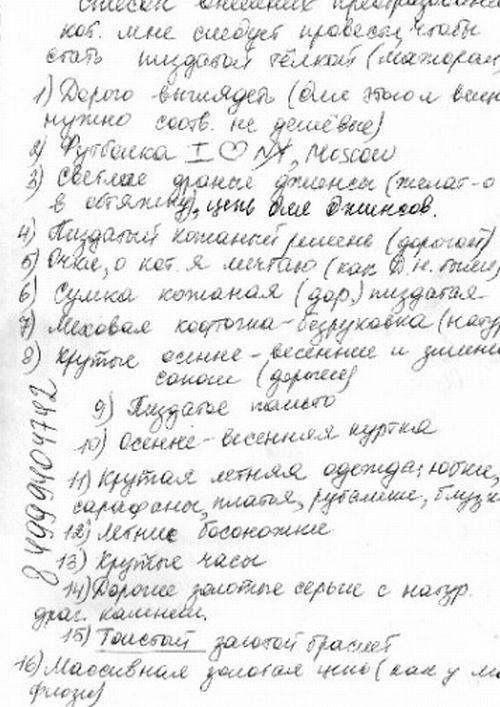 Список внешних преобразований
кот. мне следует провести, чтобы
стать пиздатой тёлкой (мажоркой
1) Дорого выглядеть (для этого вещи
нужно соотв. не дешёвые)
2) Футболка I ♡ NY, Moscow
3) Светлые драные джинсы (желат-о
в обтяжку), цепь для джинсов.
4) Пиздатый кожаный ремень (дорогой)
5) Очки, о кот. я мечтаю (как
6) Сумка кожаная (дор.) пиздатая
7) Меховая кофточка-безрукавка (нату
8) Крутые осенне-весенние и зимни
сапоги (дорогие)
9) Пиздатое пальто
10) Осенне-весенняя куртка
11) Крутая летняя одежда: юбки,
сарафаны, платья, рубашки, блузк
12) Летние босоножки
13) Крутые часы
14) Дорогие золотые серьги с натур.
драг. камнями.
15) Толстый золотой браслет
16) Массивная золотая цепь (как у
84999404742